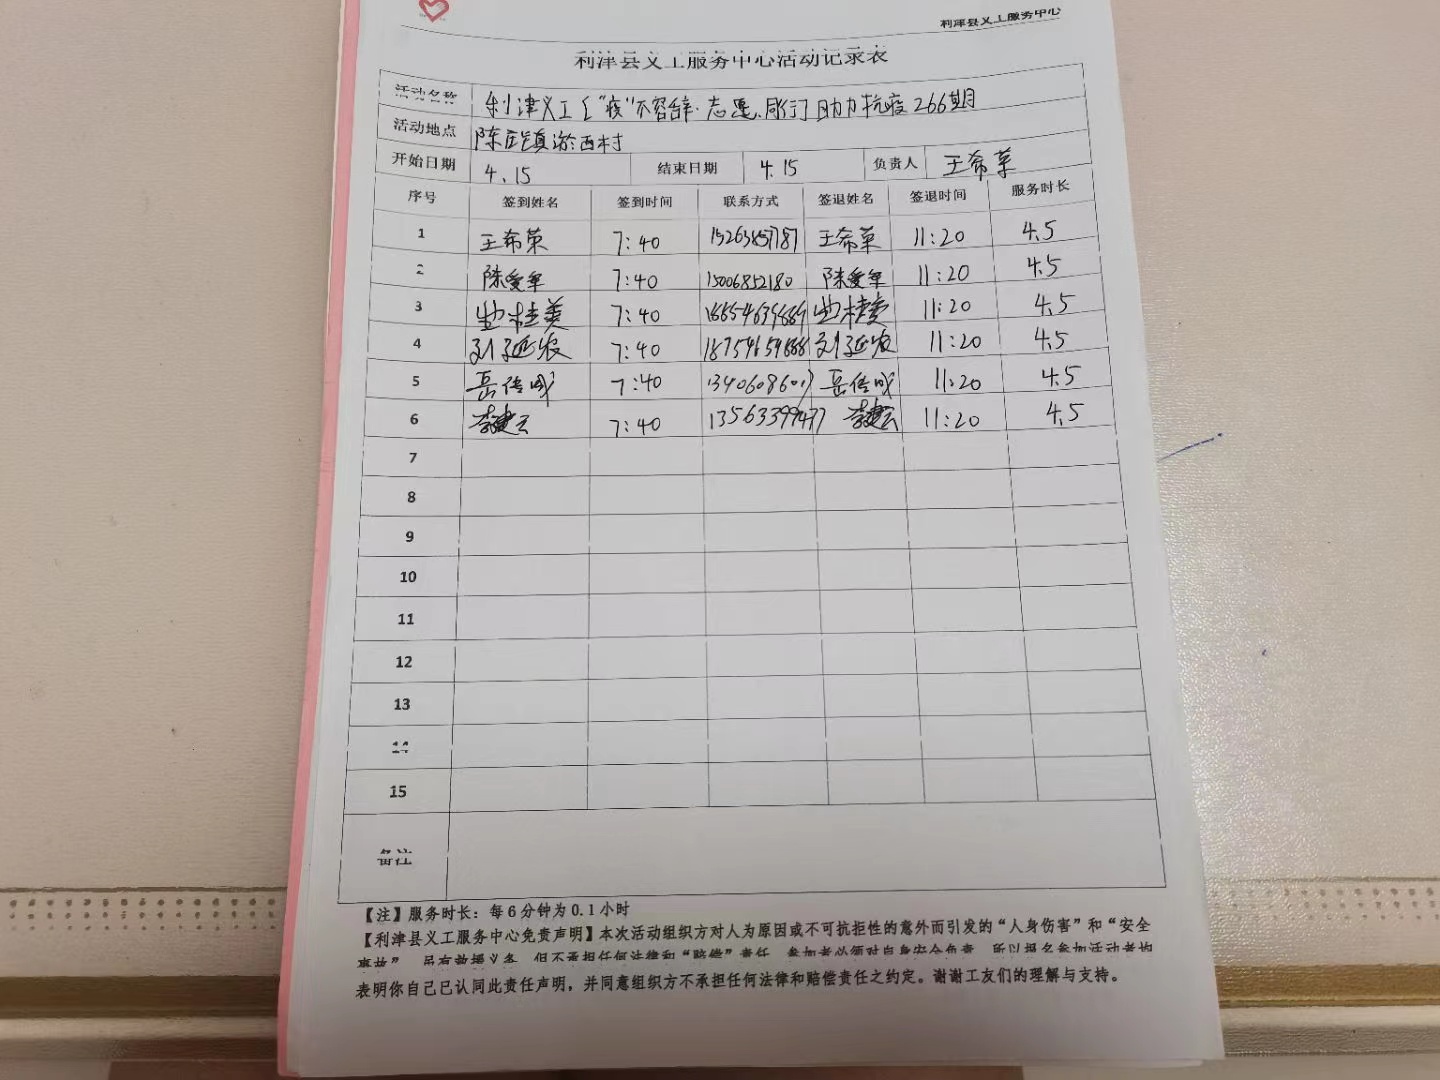 利津县义工服务中心
利津县义工服务中心活动记录表
活动名称 利津义工《"疫"不容辞·志愿同行》助力抗疫266期
活动地点 陈庄镇淤西村
开始日期 4.15 结束日期 4.15 负责人 王希荣
序号 签到姓名 签到时间 联系方式 签退姓名 签退时间 服务时长
1 王希荣 7:40 王希荣 11:20 4.5
2 陈爱军 7:40 15006852180 陈爱军 11:20 4.5
3 7:40 11:20 4.5
4 刘延农 7:40 刘延农 11:20 4.5
5 岳传成 7:40 岳传成 11:20 4.5
6 李建云 7:40 李建云 11:20 4.5
7
8
9
10
11
12
13
14
15
备注
【注】服务时长：每6分钟为0.1小时
【利津县义工服务中心免责声明】本次活动组织方对人为原因或不可抗拒性的意外而引发的“人身伤害”和“安全
事故”，虽有救援义务，但不承担任何法律和“赔偿”责任，参加者必须对自身安全负责，所以报名参加活动者均
表明你自己已认同此责任声明，并同意组织方不承担任何法律和赔偿责任之约定。谢谢工友们的理解与支持。